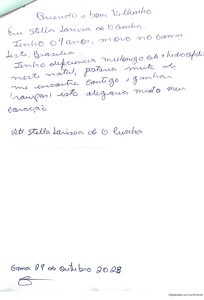 Querido e bom Velhinho
Eu Stella Larissa de O Cunha
Tenho 09 anos, moro no Gama
Leste Brasília
Tenho deficiencia
neste natal, gostaria muito de
me encontra contigo e ganhar
roupas isto alegraria muito meu
coração
Att Stella Larissa de O Cunha
Gama 09 de Outubro 2023
Digitalizado com CamScanner